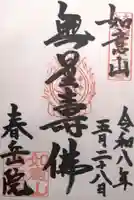 如意山
無量壽佛
令和八年
五月二十八日
春岳院